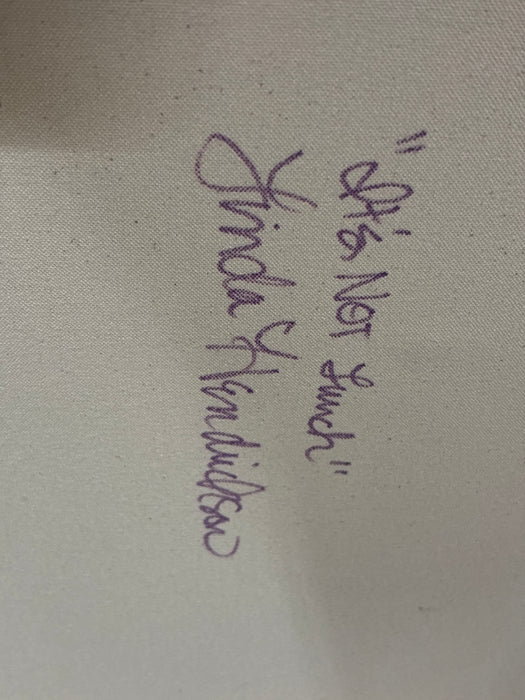 "It's NOT Lunch"
Linda Hendrickson